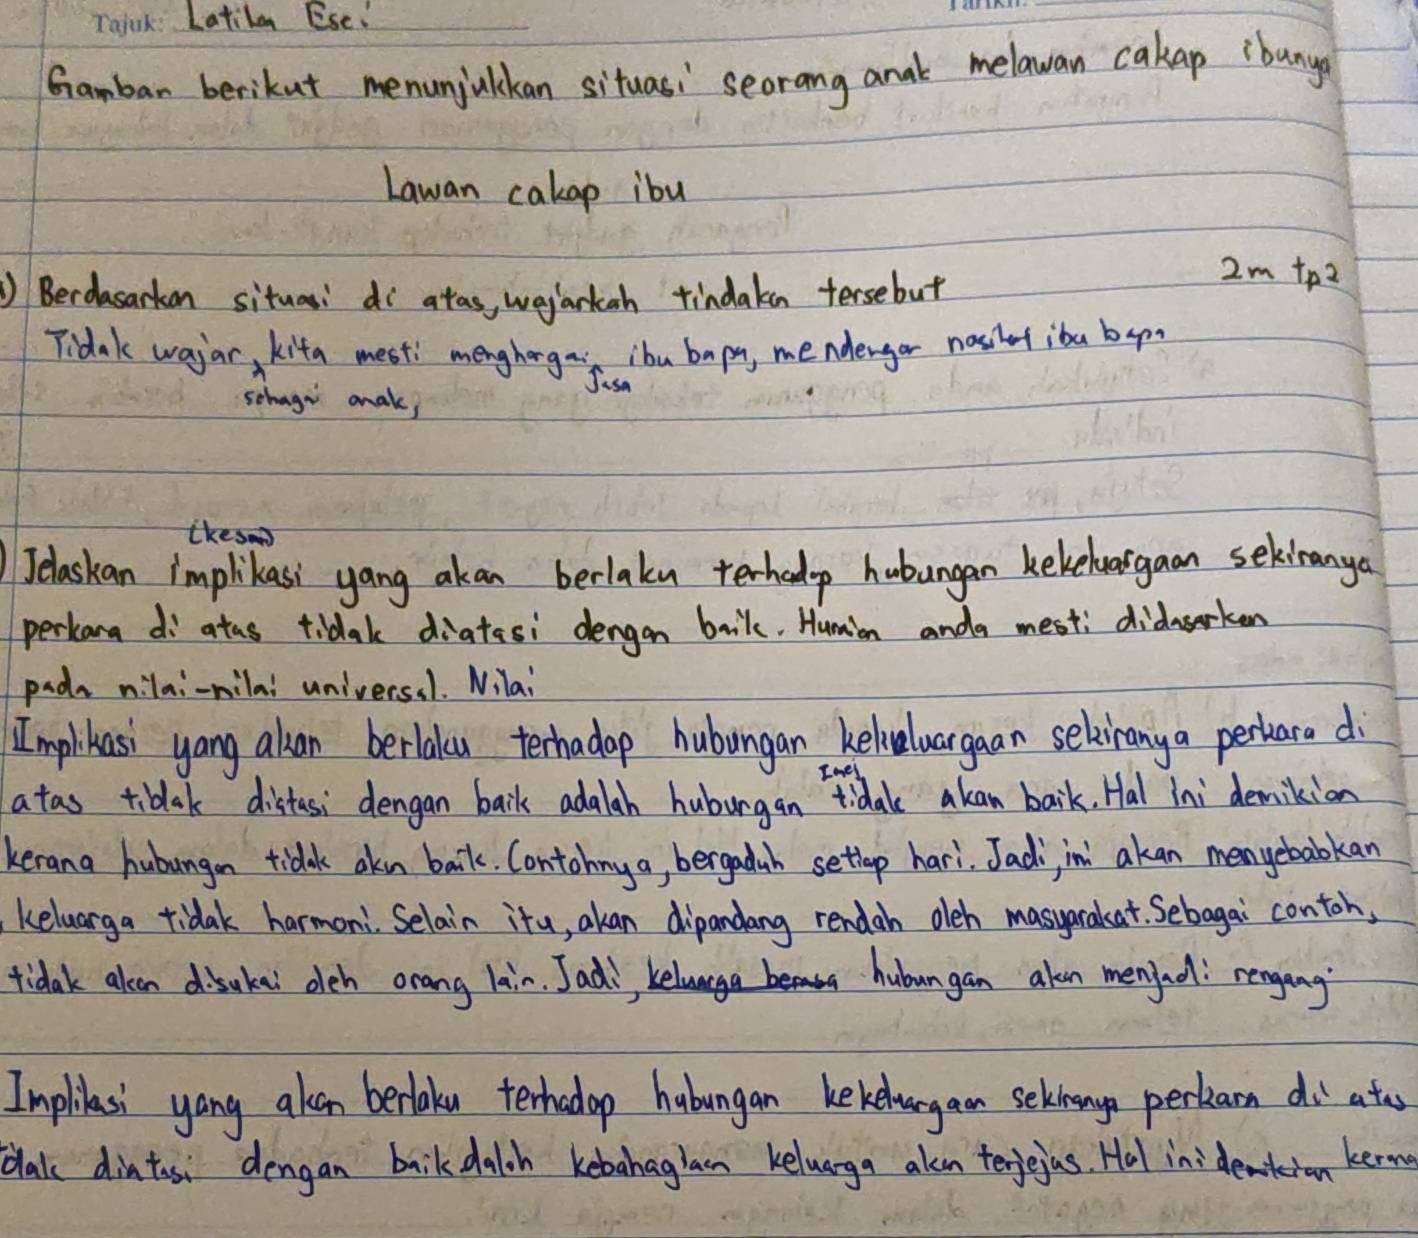 Tajuk: Latihan Esei
Gambar berikut menunjukkan situasi seorang anak melawan cakap ibunya
Lawan cakap ibu
) Berdasarkan situasi di atas, wajarkah tindakan tersebut 2m tp2
Tidak wajar, kita mesti menghargai ibu bapa, mendengar nasihat ibu bapa
sebagai anak, Jasa
(kesan)
) Jelaskan implikasi yang akan berlaku terhadap hubungan kekeluargaan sekiranya
perkara di atas tidak diatasi dengan baik. Huraian anda mesti didasarkan
pada nilai-nilai universal. Nilai
Implikasi yang akan berlaku terhadap hubungan kekeluargaan sekiranya perkara di
atas tidak diatasi dengan baik adalah hubungan tidak akan baik. Hal ini demikian
kerana hubungan tidak akn baik. Contohnya, bergaduh setiap hari. Jadi, ini akan menyebabkan
keluarga tidak harmoni. Selain itu, akan dipandang rendah oleh masyarakat. Sebagai contoh,
tidak akan disukai oleh orang lain. Jadi, keluarga berasa hubungan akan menjadi rengang.
Implikasi yang akan berlaku terhadap hubungan kekeluargaan sekiranya perkara di atas
tidak diatasi dengan baik dalah kebahagiaan keluarga akan terjejas. Hal ini demikian kerana